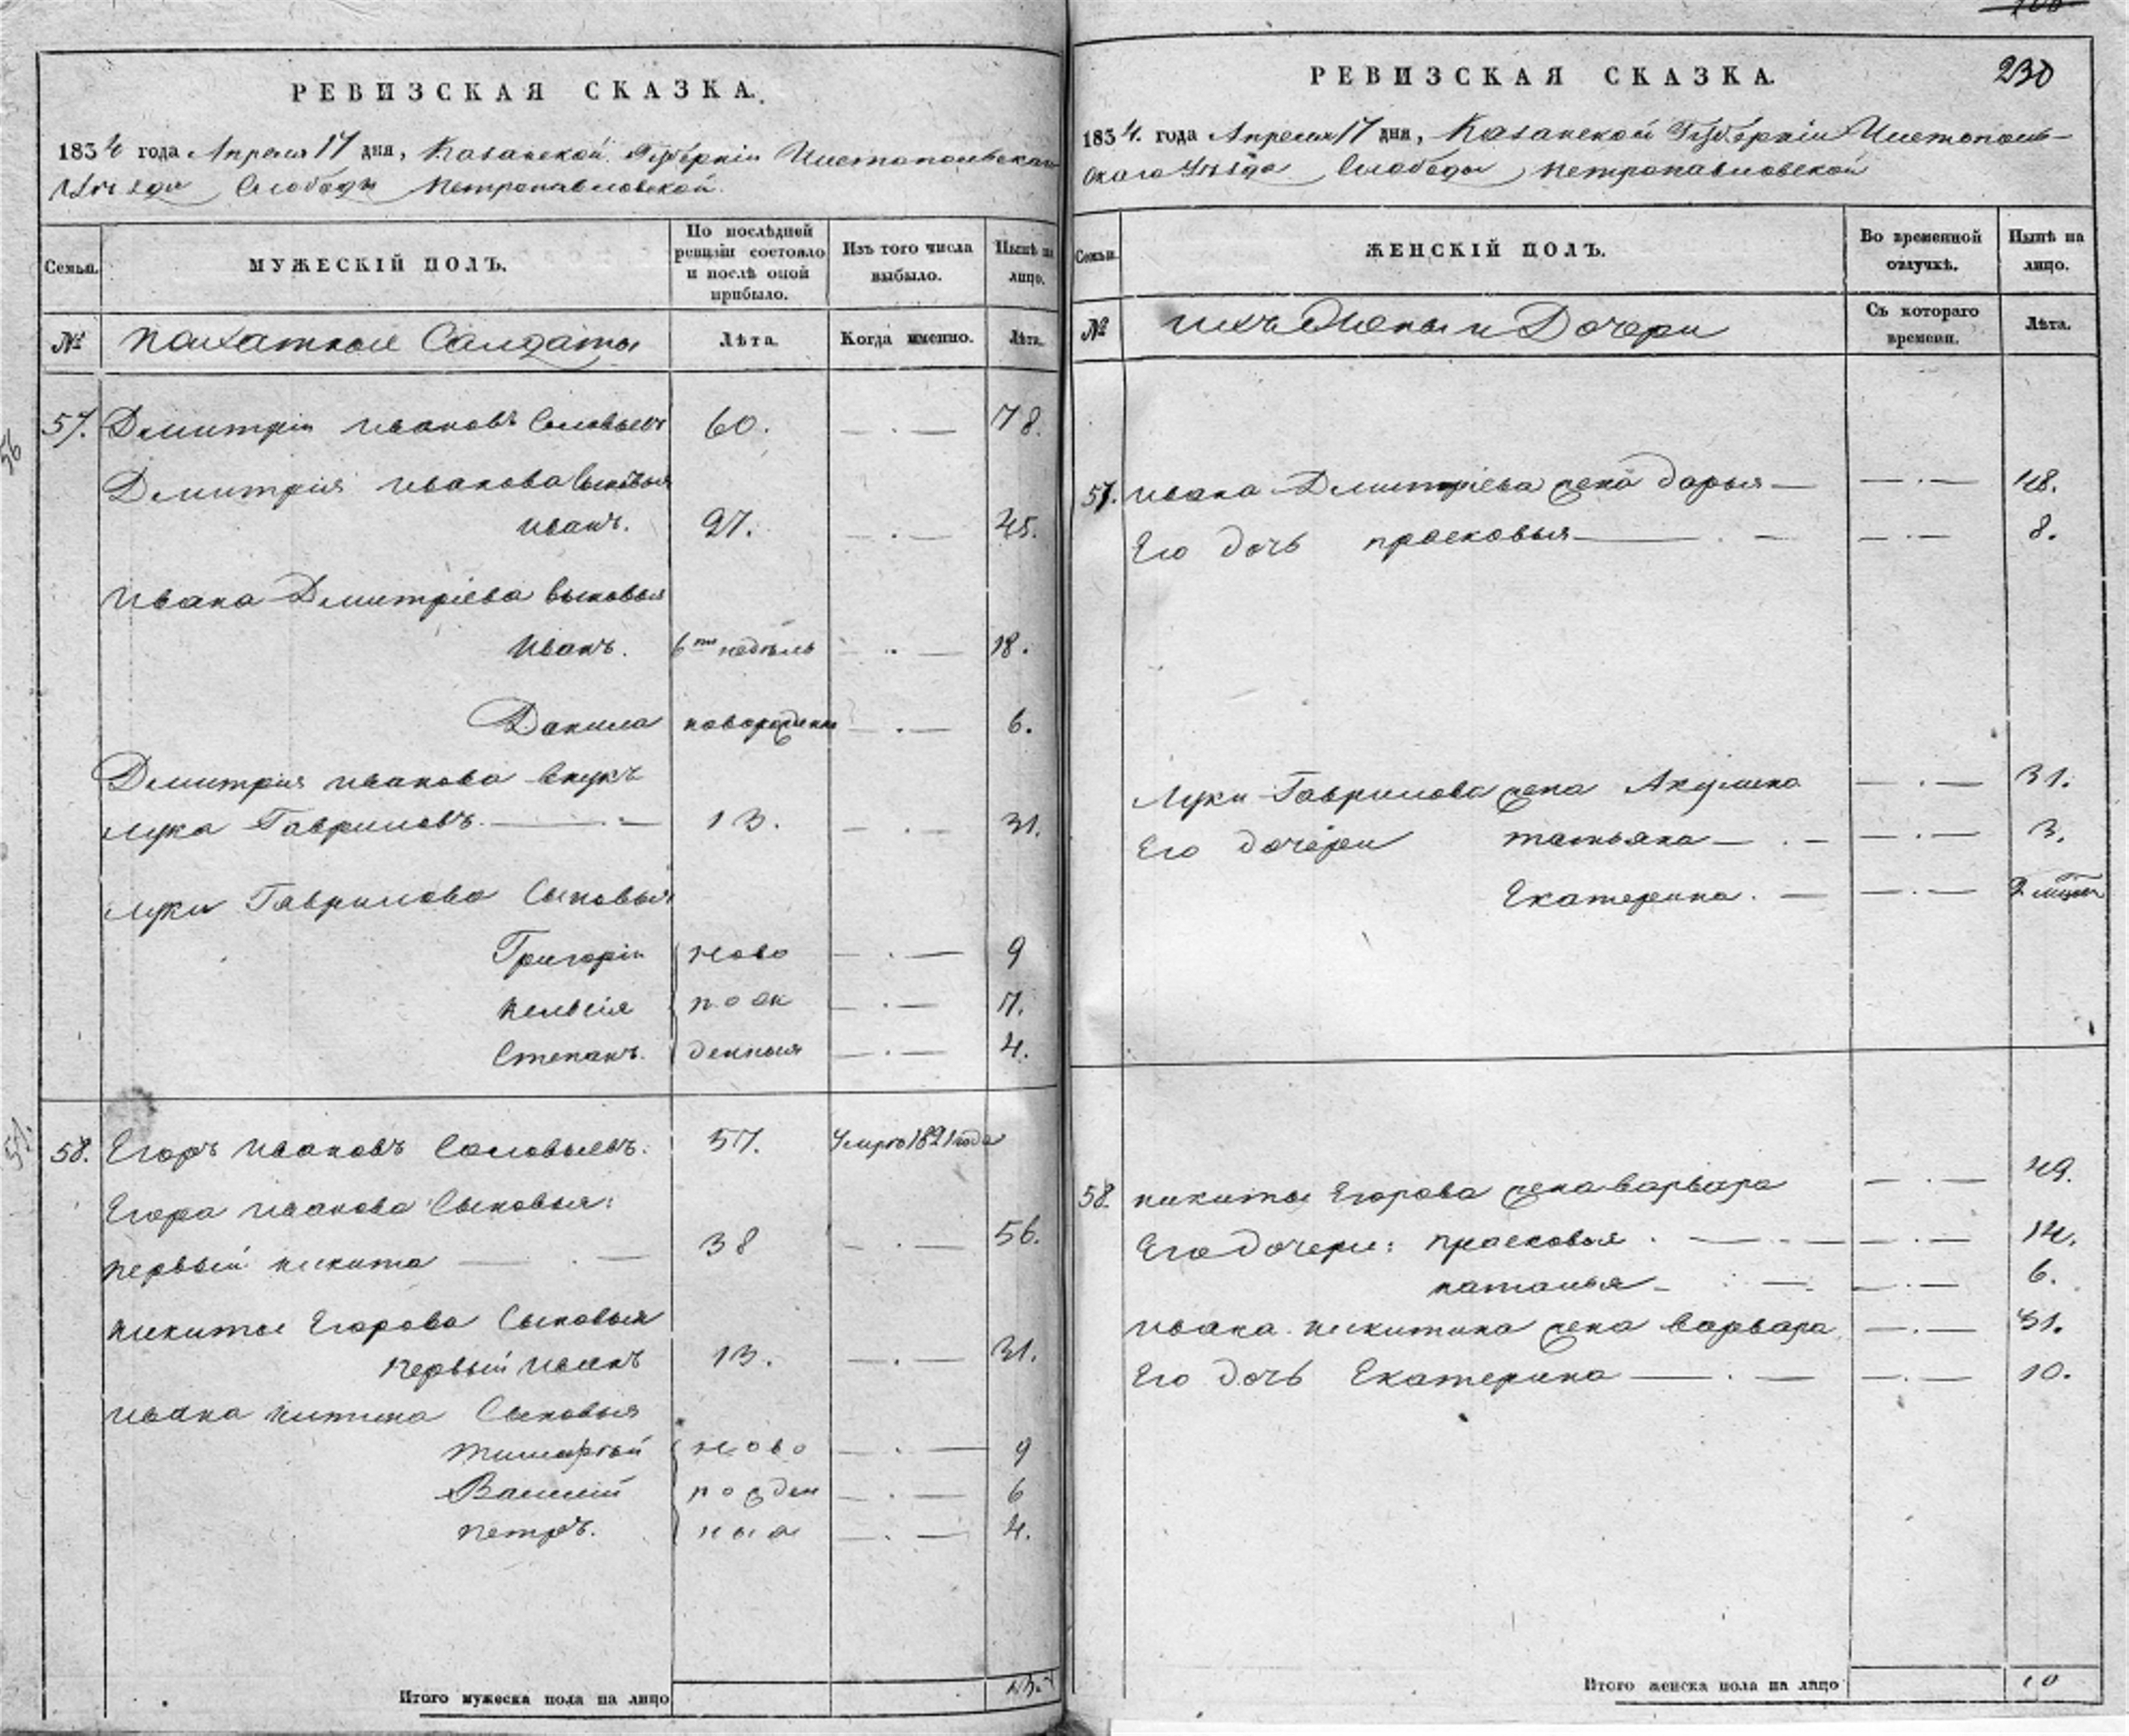 РЕВИЗСКАЯ СКАЗКА.
1834 года Апреля 17 дня, Казанской Губерніи Чистопольскаго
Уѣзда Слободы Петропавловской.
Семьи.
МУЖЕСКІЙ ПОЛЪ.
По послѣдней ревизіи состояло и послѣ оной прибыло.
Изъ того числа выбыло.
Нынѣ на лицо.
№ Пахатные Салдаты Лѣта. Когда именно. Лѣта.
57. Дмитріи Ивановъ Соловьевъ 60. — . — 78.
56
Дмитрія Иванова Сыновья
Иванъ. 27. — . — 45.
Ивана Дмитріева сыновья
Иванъ. 6ти недѣль — . — 18.
Данила новорожденъ — . — 6.
Дмитрия Иванова внукъ
Лука Гавриловъ. — . — 13. — . — 31.
Луки Гаврилова Сыновья
Григоріи ново — . — 9
— . — 7.
Степанъ. денныя — . — 4.
58. Егоръ Ивановъ Соловьевъ. 57. Умре 1821 года
57.
Егора Иванова Сыновья:
первый Никита — . — 38 — . — 56.
Никиты Егорова Сыновья
первый Иванъ 13. — . — 31.
Ивана Китина Сыновья
ново — . — 9
Василій рожден — . — 6
Петръ. ныя — . — 4.
Итого мужеска пола на лицо
РЕВИЗСКАЯ СКАЗКА.
230
1834. года Апреля 17 дня, Казанской Губерніи Чистополь-
скаго Уѣзда Слободы Петропавловской
Семьи.
ЖЕНСКІЙ ПОЛЪ.
Во временной отлучкѣ.
Нынѣ на лицо.
№ Ихъ Жены и Дочери Съ котораго времени. Лѣта.
57. Ивана Дмитріева жена Дарья — — . — 48.
Его дочь Прасковья — . — — . — 8.
Луки Гаврилова жена Акулина — . — 31.
Его дочери Татьяна — . — — . — 3.
Екатерина. — — . —
58. Никиты Егорова жена Варвара — . — 49.
Его дочери: Прасковья . — . — — . — 14.
Наталья — . — — . — 6.
Ивана Никитина жена Варвара — . — 31.
Его дочь Екатерина — . — — . — 10.
Итого женска пола на лицо 10